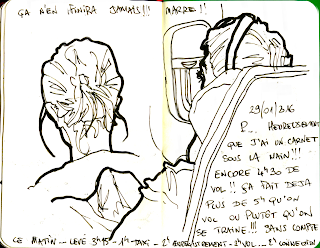 ÇA N'EN FINIRA JAMAIS!!! MARRE!!
29/01/2016
P... HEUREUSEMENT
QUE J'AI UN CARNET
SOUS LA MAIN!!!
ENCORE 4H30 DE
VOL!! ÇA FAIT DEJA
PLUS DE 5H QU'ON
VOL OU PLUTÔT QU'ON
SE TRAINE!!! SANS COMPTER
CE MATIN - LEVÉ 3H45 - 1H TAXI - 2H ENREGISTREMENT - 2H VOL - 2H CONNEXION